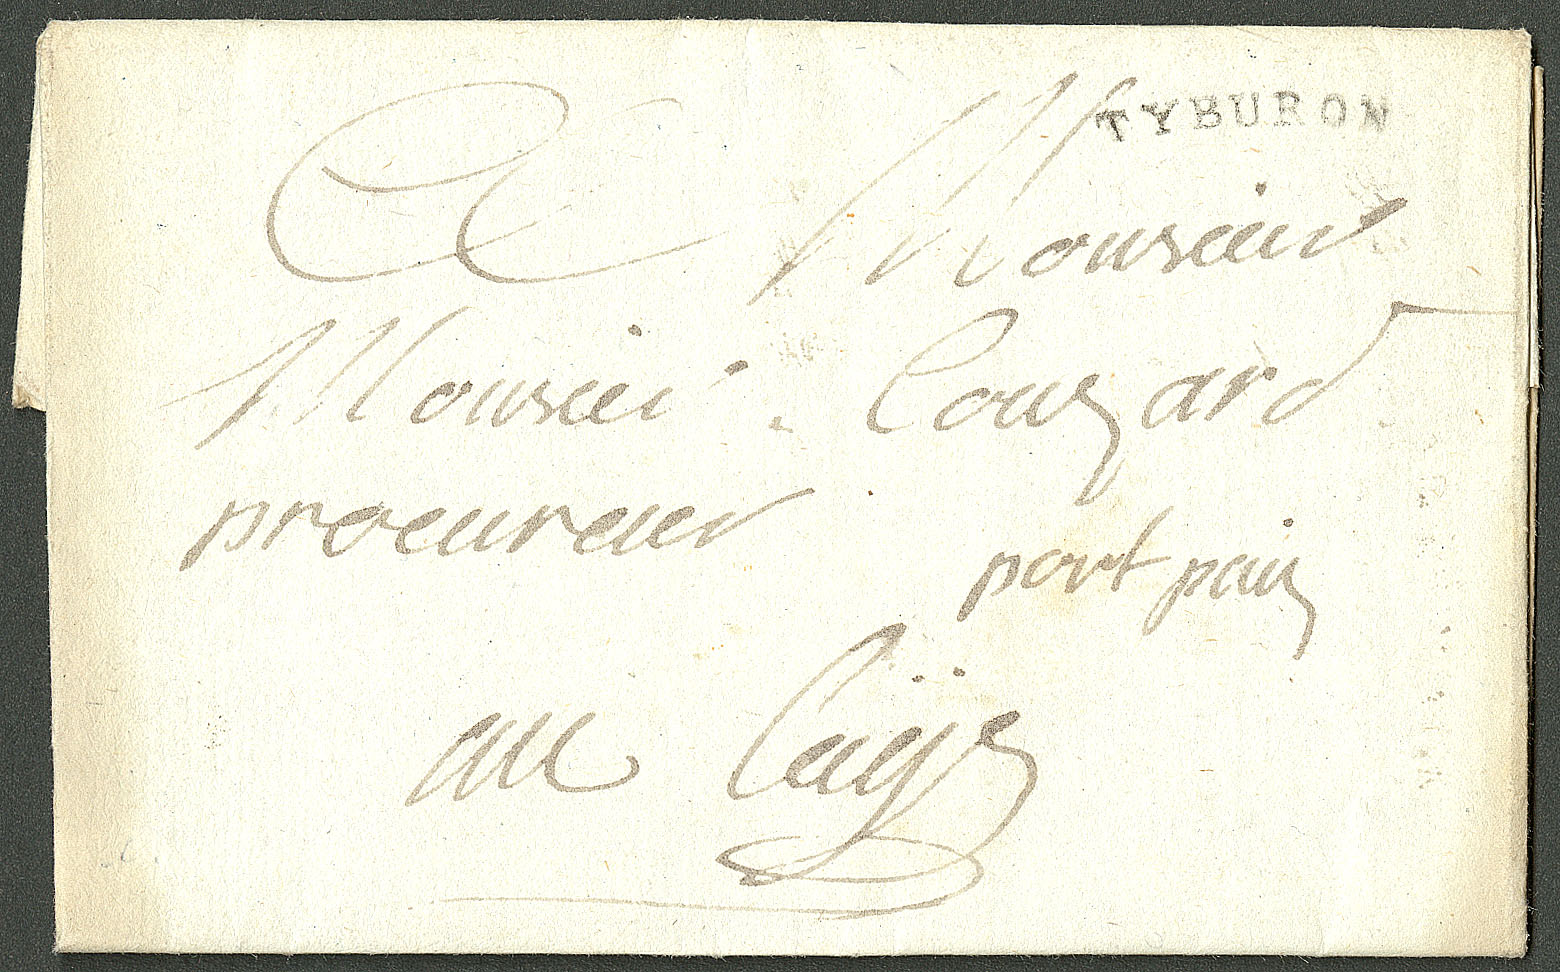 TYBURON
A Monsieur
Monsieur Couzard
procureur
port paiz
au Caÿs